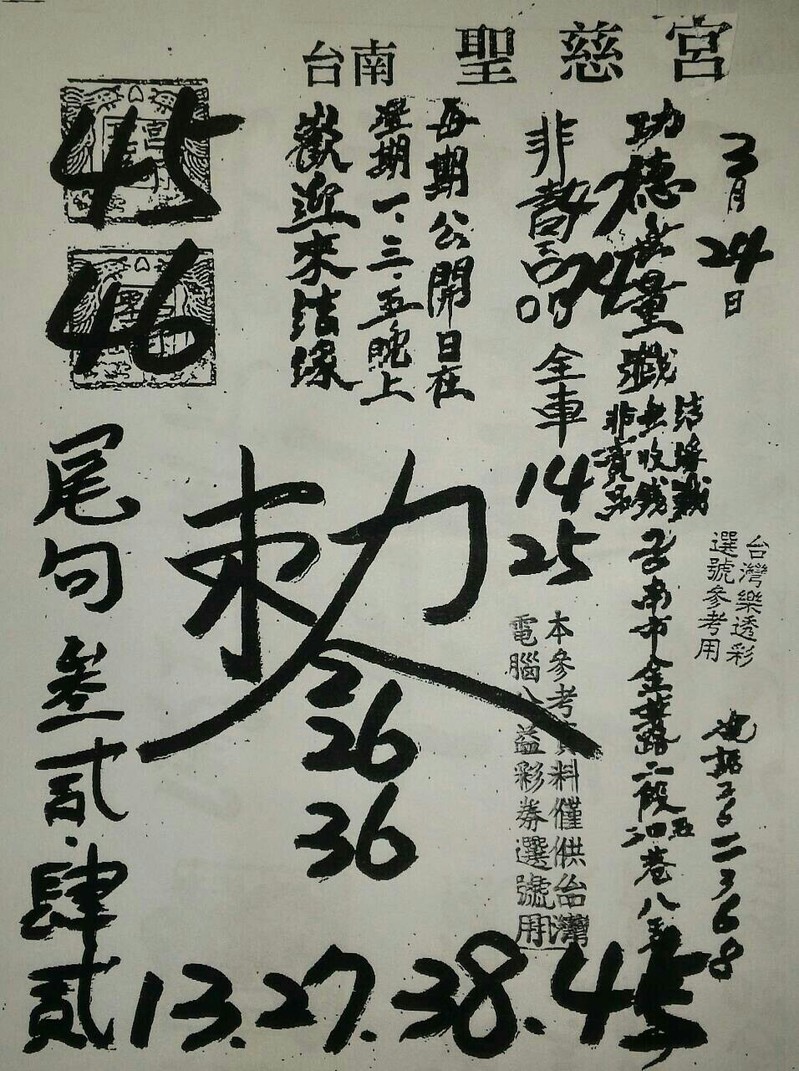 台南 聖慈宮
3月24日
功德無量
非賣品
全車
14
25
每期公開日在
星期一、三、五晚上
歡迎來結緣
45
46
結緣
無收錢
非賣品
台灣樂透彩
選號參考用
台南市金華路二段
巷八
電話2622368
本參考資料僅供台灣
電腦公益彩券選號用
敕令
2
26
36
尾句叁貳.肆貳
13.27.38.45